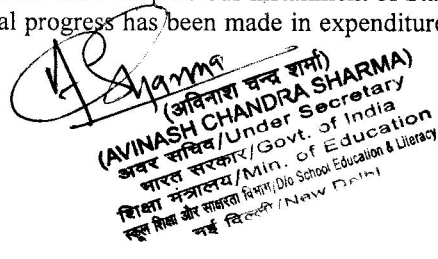 al progress has been made in expenditure
Sharma
(अविनाश चन्द्र शर्मा)
(AVINASH CHANDRA SHARMA)
अवर सचिव/Under Secretary
भारत सरकार/Govt. of India
शिक्षा मंत्रालय/Min. of Education
स्कूल शिक्षा और साक्षरता विभाग/D/o School Education & Literacy
नई दिल्ली/New Delhi